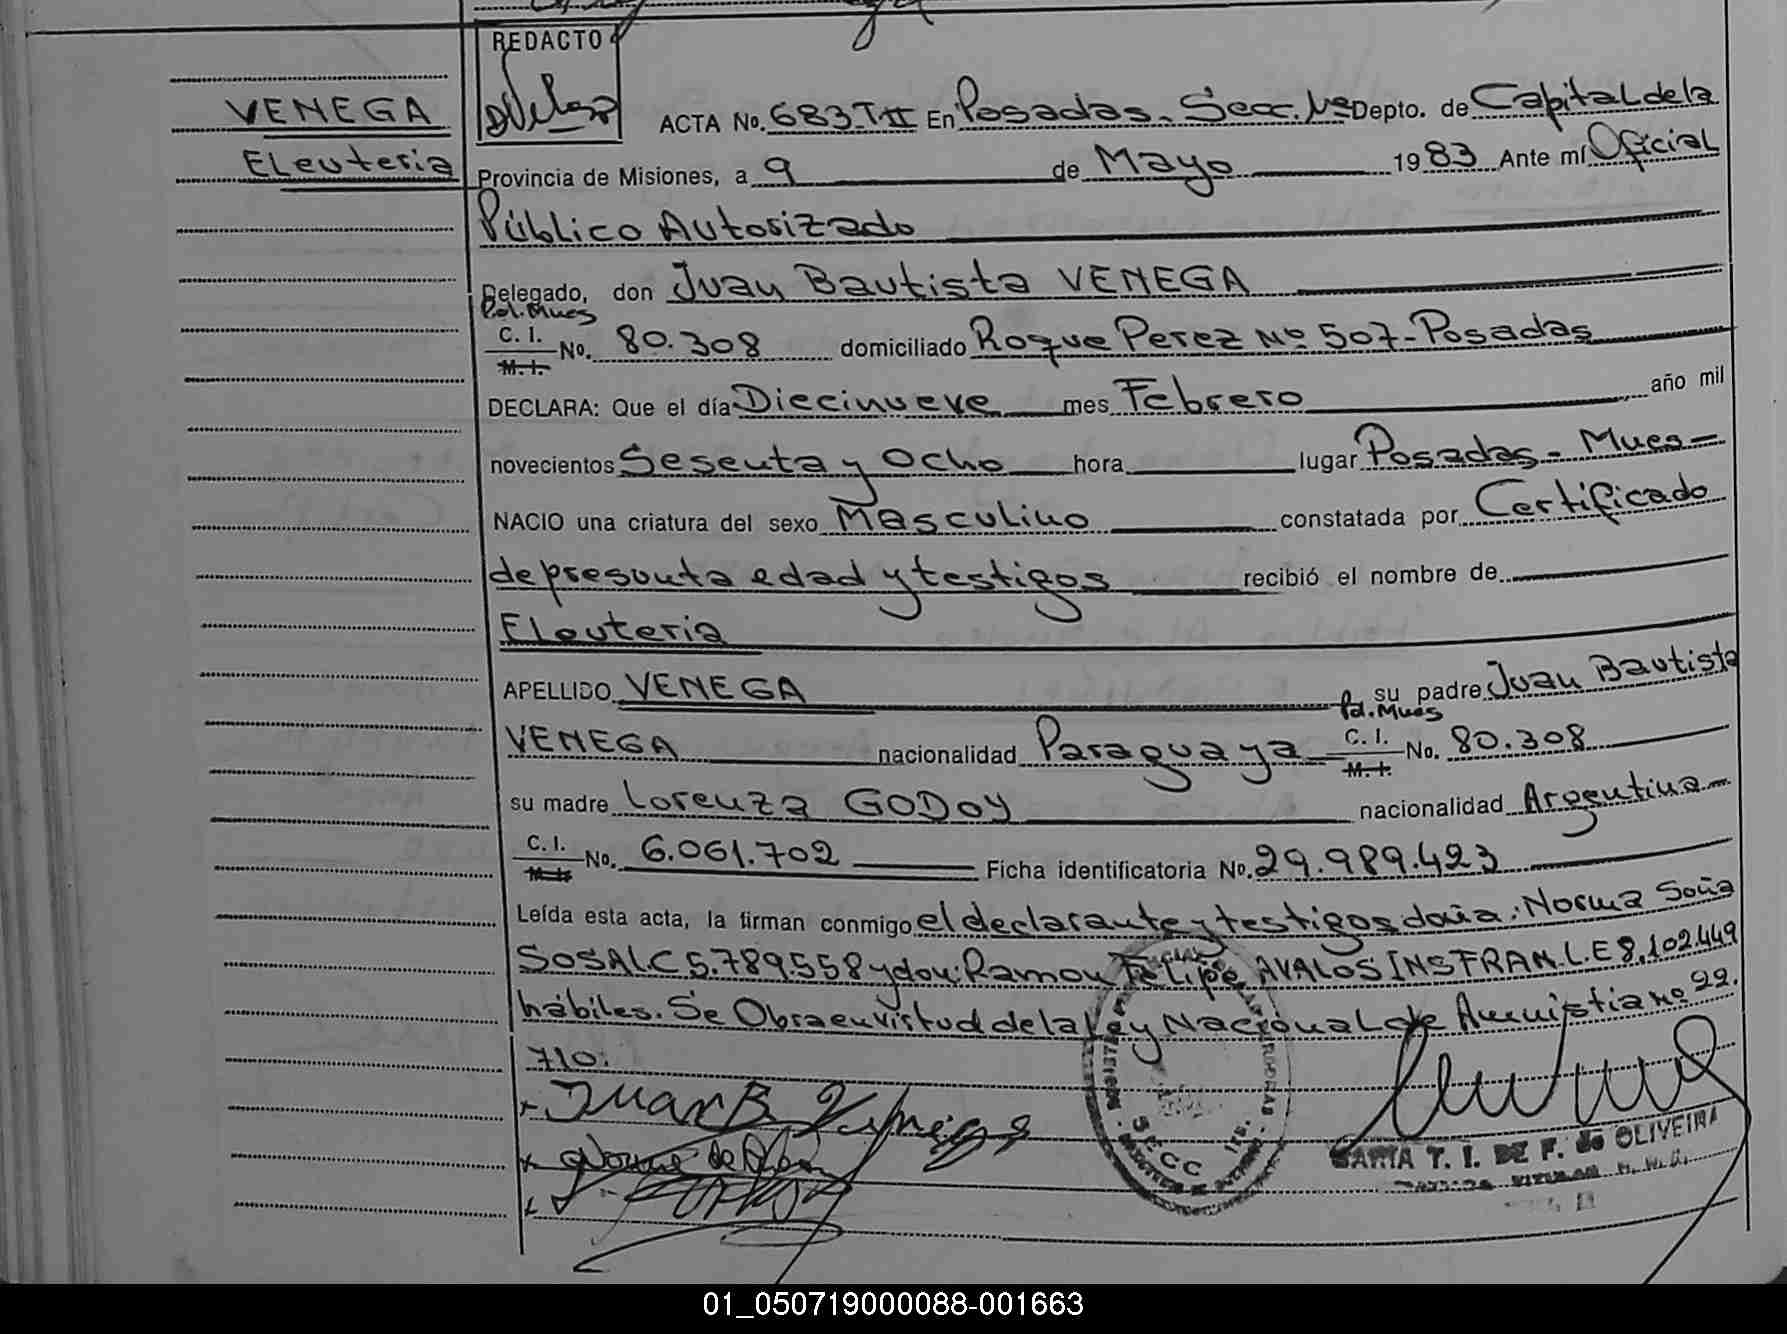 REDACTO
VENEGA
Eleuteria
ACTA No. 683-T-II En Posadas - Secc. 1ra Depto. de Capital de la
Provincia de Misiones, a 9 de Mayo 1983 Ante mí Oficial
Público Autorizado
Delegado, don Juan Bautista VENEGA
Pol. Mnes
C. I.
M. I. No. 80.308 domiciliado Roque Perez Nº 507 - Posadas
DECLARA: Que el día Diecinueve mes Febrero año mil
novecientos Sesenta y Ocho hora lugar Posadas - Mnes -
NACIO una criatura del sexo Masculino constatada por Certificado
de presunta edad y testigos recibió el nombre de
Eleuteria
APELLIDO VENEGA su padre Juan Bautista
Pol. Mnes
VENEGA nacionalidad Paraguaya C. I. No. 80.308
M. I.
su madre Lorenza GODOY nacionalidad Argentina
C. I.
M. I. No. 6.061.702 Ficha identificatoria No. 29.989.423
Leída esta acta, la firman conmigo el declarante y testigos doña: Norma Sonia
SOSA L.C 5.789.558 y don: Ramon Felipe AVALOS INSFRAN. L.E 8.102.449
hábiles. Se Obra en virtud de la Ley Nacional de Amnistia nº 22.
710.
Juan B Venega
SECC
T. I. DE F. de OLIVEIRA
01_050719000088-001663